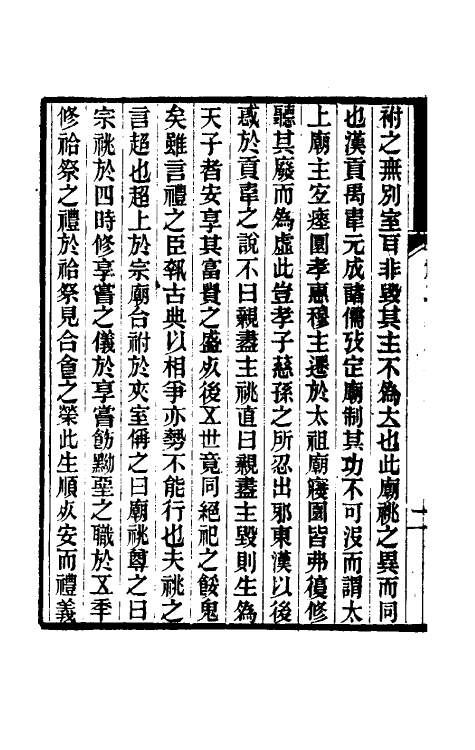 祔之無別室耳非毀其主不為大也此廟祧之異而同
也漢貢禹韋元成諸儒攷定廟制其功不可沒而謂太
上廟主宜瘞園孝惠穆主遷於太祖廟寢園皆弗復修
聽其廢而為虛此豈孝子慈孫之所忍出耶東漢以後
惑於貢韋之說不曰親盡主祧直曰親盡主毀則生為
天子者安享其富貴之盛歿後㐅世竟同絕祀之餒鬼
矣雖言禮之臣執古典以相爭亦勢不能行也夫祧之
言超也超上於宗廟合祔於夾室偁之曰廟祧尊之曰
宗祧於四時修享嘗之儀於享嘗飭黝堊之職於㐅秊
修祫祭之禮於祫祭見合會之榮此生順歿安而禮義